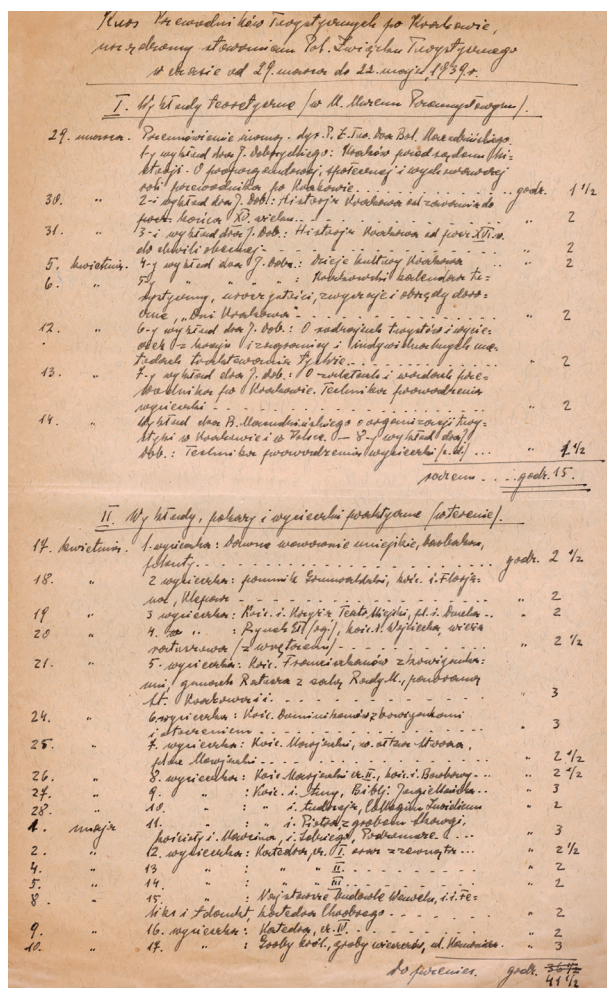 Kurs Przewodników Turystycznych po Krakowie,
urządzony staraniem Pol. Związku Turystycznego
w czasie od 29. marca do 22. maja 1939. r.
I. Wykłady teoretyczne /w M. Muzeum Przemysłowym/.
29. marca. Przemówienie dyr. P. Z. Tur. Dra Bol.
1-y wykład dra J. Dobrzyckiego: Kraków przed sądem hi-
storji. O propagandowej, społecznej i wychowawczej
roli przewodnika po Krakowie . . . godz. 1 1/2
30. " 2-i wykład dra J. Dob.: Historja Krakowa od zarania do
końca XV. wieku . . . " 2
31. " 3-i wykład dra J. Dob.: Historja Krakowa od pocz. XVI. w.
do chwili obecnej - . . . " 2
5. kwietnia. 4-y wykład dra J. Dobr.: Dzieje kultury Krakowa " 2
6. " 5-y " " " " : Krakowski kalendarz tu-
rystyczny, uroczystości, zwyczaje i obrzędy doro-
czne, „Dni Krakowa" - . . . " 2
12. " 6-y wykład dra J. Dob.: O rodzajach turystów i wycie-
czek z kraju i zagranicy i indywidualnych me-
todach . . . " 2
13. " 7-y wykład dra J. Dob.: O zaletach i wadach prze-
wodnika po Krakowie. Technika prowadzenia
wycieczki - . . . " 2
14. " Wykład dra B. o organizacji tury-
styki w Krakowie i w Polsce. — 8-y wykład dra J.
Dob.: Technika prowadzenia wycieczki (c. d.) . . . " 1 1/2
razem . . . godz. 15.
II. Wykłady, pokazy i wycieczki praktyczne /w terenie/.
17. kwietnia. 1. wycieczka: Dawne warownie miejskie, barbakan,
. . . godz. 2 1/2
18. " 2 wycieczka: pomnik Grunwaldzki, kośc. ś. Florja-
na, Kleparz - . . . " 2
19 " 3 wycieczka: Kośc. ś. Krzyża, Teatr Miejski, pl. ś. Ducha . . " 2
20 " 4. " : Rynek Gł., kośc. ś. Wojciecha, wieża
ratuszowa / z wnętrzem / - . . . " 2 1/2
21. " 5. wycieczka: Kośc. Franciszkanów z krużganka-
mi, gmach Ratusza z salą Rady M., panorama
. . . " 3
24. " 6 wycieczka: Kośc. Dominikanów z krużgankami
i otoczeniem - . . . " 3
25. " 7. wycieczka: Kośc. Marjacki, w. ołtarz Stwosza,
plac Marjacki - . . . " 2 1/2
26. " 8. wycieczka: Kośc. Marjacki cz. II., kośc. ś. Barbary . . " 2 1/2
27. " 9. " : Kośc. ś. Anny, Bibl. Jagiellońska . . " 3
28. " 10. " : " ś. Andrzeja, Collegium Iuridicum " 2
1. maja 11. " : " ś. Piotra z grobem Skargi,
kościoły ś. Marcina, ś. Idziego, Podzamcze . . . " 3
2. " 12. wycieczka: Katedra, cz. I. oraz z zewnątrz . . . " 2 1/2
4. " 13 " : " " II. - . . . " 2
5. " 14. " : " " III - . . . " 2
8 " 15. " : Najstarsze budowle Wawelu, ś. ś. Fe-
liks i Adaukt, katedra Chrobrego . . . " 2
9. " 16. wycieczka: Katedra, cz. IV. . . . " 2
10. " 17. " : Groby król., groby wieszczów, ul. Kanonicza . " 3
Do przenies. godz. 36 1/2
41 1/2